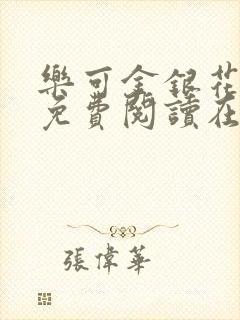 樂可金銀花
免費閱讀在
張偉華